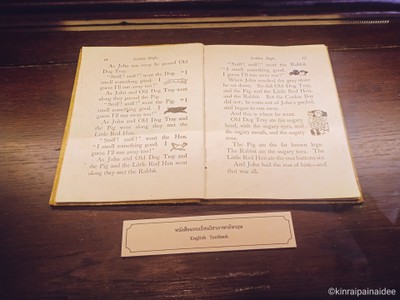 As John ran away he passed Old
Dog Tray.
"Sniff! sniff!" went the Dog. "I
smell something good. I
guess I'll run away too!"
As John and Old Dog Tray went
along they passed the Pig.
"Sniff! sniff!" went the Pig. "I
smell something good. I
guess I'll run away too!"
As John and Old Dog Tray and
the Pig went along they met the
Little Red Hen.
"Sniff! sniff!" went the Hen.
"I smell something good. I
guess I'll run away too!"
As John and Old Dog Tray and
the Pig and the Little Red Hen went
along they met the Rabbit.
"Sniff! sniff!" went the Rabbit.
"I smell something good. I
guess I'll run away too!"
When John reached the
he sat down. So did Old Dog Tray,
and the Pig and the Little Red Hen,
and the Rabbit. But the Cookie Boy
did not, he
began to run away.
And this is where he went.
Old Dog Tray ate his sugary
head, with the sugary eyes, and
the sugary mouth, and the sugary
nose.
The Pig ate the far brown legs.
The Rabbit ate the sugary toes. The
Little Red Hen ate the two buttons
And John had the rest of him—and
that was all.
หนังสือแบบเรียนวิชาภาษาอังกฤษ
English Textbook
©kinraipainaidee